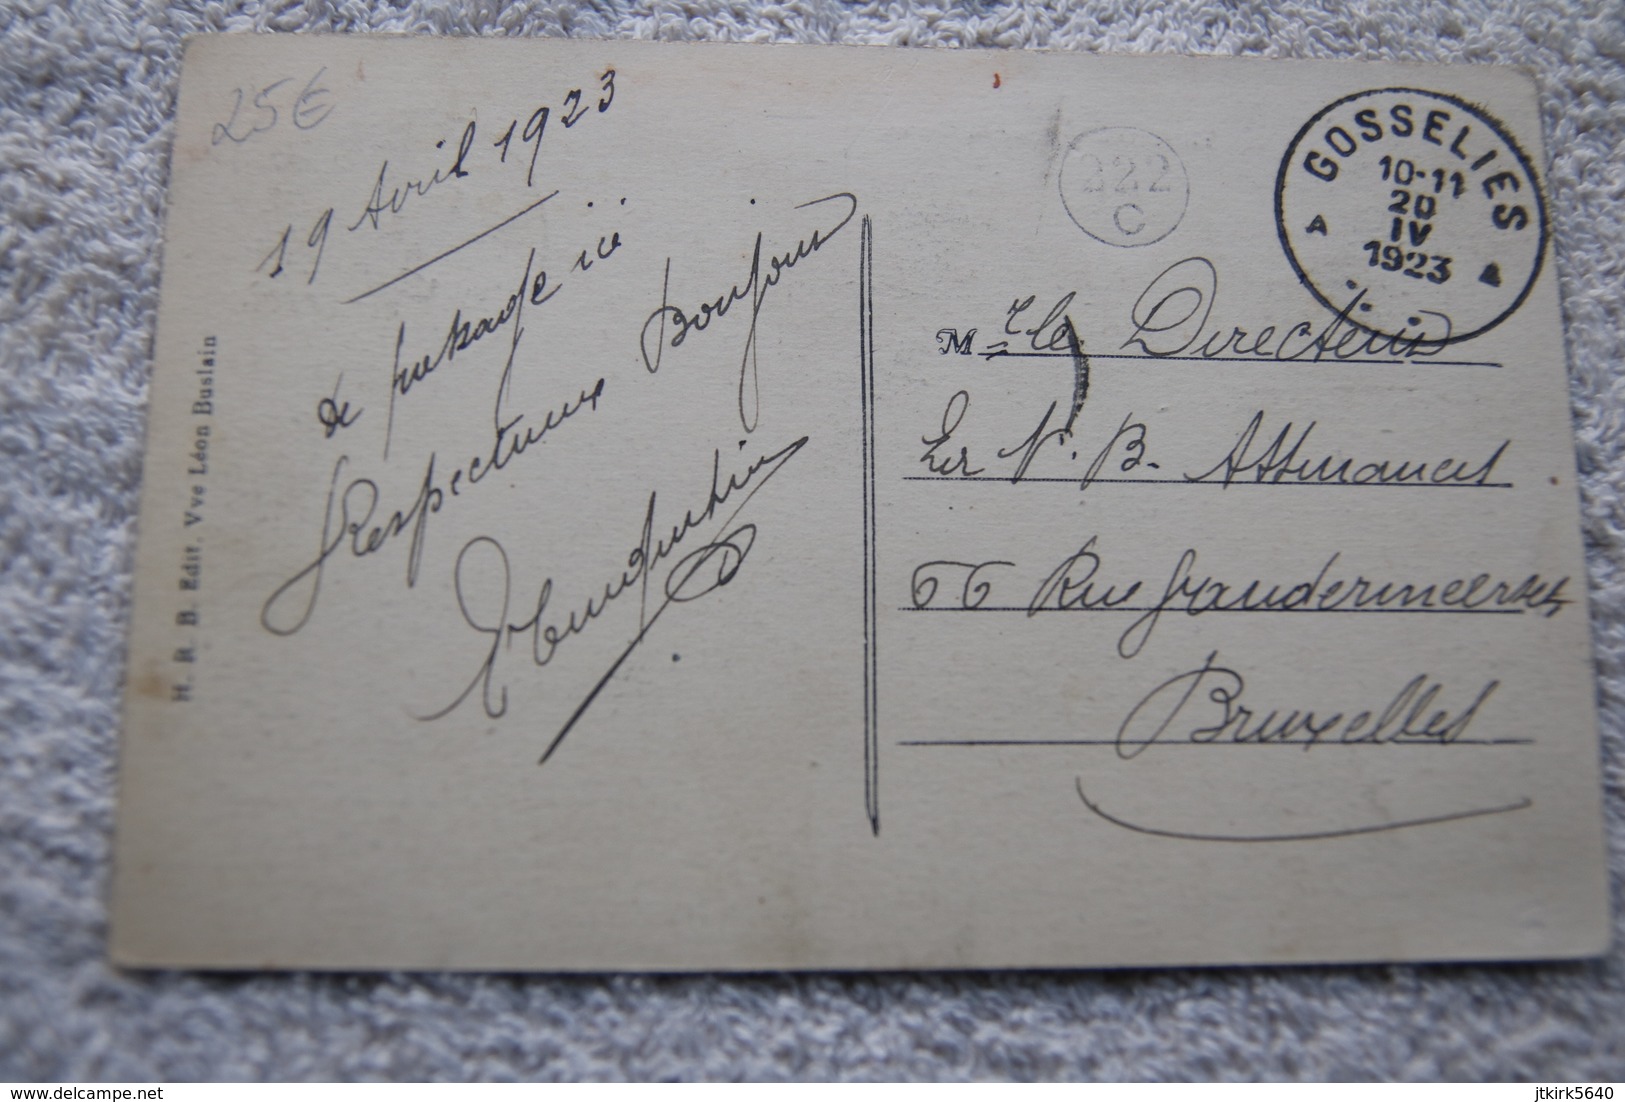 25€
19 Avril 1923
de passage ici
Respectueux Bonjour
H. R. B. Edit. Vve Léon Buslain
222
C
GOSSELIES
10-11
20
IV
1923
A A
M r le Directeur
N. B.
66 Rue Vandermeersch
Bruxelles
delcampe.net
jtkirk5640